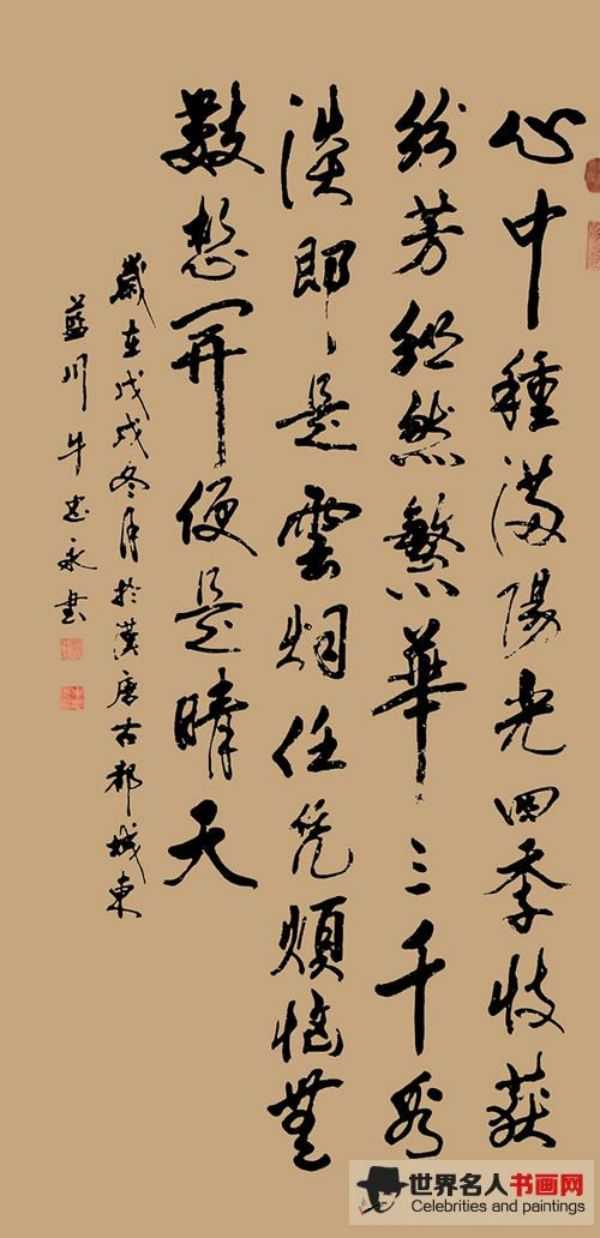 心中種滿陽光四季收获
紛芳縱然繁華三千看
淡即是雲烟任凭煩惱無
數想開便是晴天
歲在戊戌冬月於漢唐古都城東
藍川牛忠永書
世界名人书画网
Celebrities and paintings